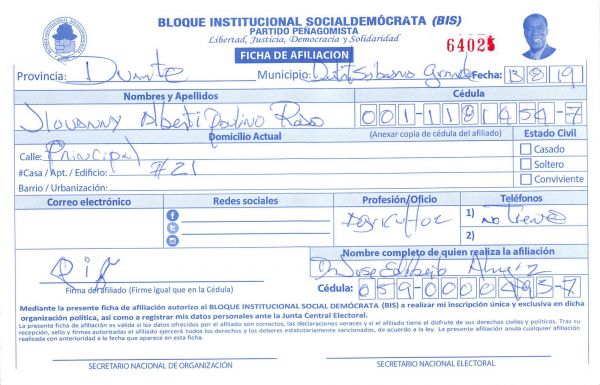 BLOQUE INSTITUCIONAL SOCIALDEMÓCRATA (BIS)
PARTIDO PEÑAGOMISTA
Libertad, Justicia, Democracia y Solidaridad
FICHA DE AFILIACION
64025
Provincia: Duarte Municipio: Sabana Grande Fecha: 13 8 19
Nombres y Apellidos Cédula
Jiovanny Alberti Paulino Roso 001-1181454-7
Domicilio Actual (Anexar copia de cédula del afiliado) Estado Civil
Calle: Principal Casado
#Casa / Apt. / Edificio: #21 Soltero
Barrio / Urbanización: Conviviente
Correo electrónico Redes sociales Profesión/Oficio Teléfonos
Agricultor 1) No Tiene
2)
Nombre completo de quien realiza la afiliación
Jose
Firma del afiliado (Firme igual que en la Cédula) Cédula: 059-0000495-7
Mediante la presente ficha de afiliación autorizo al BLOQUE INSTITUCIONAL SOCIAL DEMÓCRATA (BIS) a realizar mi inscripción única y exclusiva en dicha
organización política, así como a registrar mis datos personales ante la Junta Central Electoral.
La presente ficha de afiliación es válida si los datos ofrecidos por el afiliado son correctos, las declaraciones veraces y si el afiliado tiene el disfrute de sus derechos civiles y políticos. Tras su
recepción, sello y firmas autorizadas el afiliado ejercerá todos los derechos y los deberes estatutariamente sancionados, de acuerdo a la ley. La presente afiliación anula cualquier afiliación
realizada con anterioridad a la fecha que aparece en esta ficha.
SECRETARIO NACIONAL DE ORGANIZACIÓN SECRETARIO NACIONAL ELECTORAL